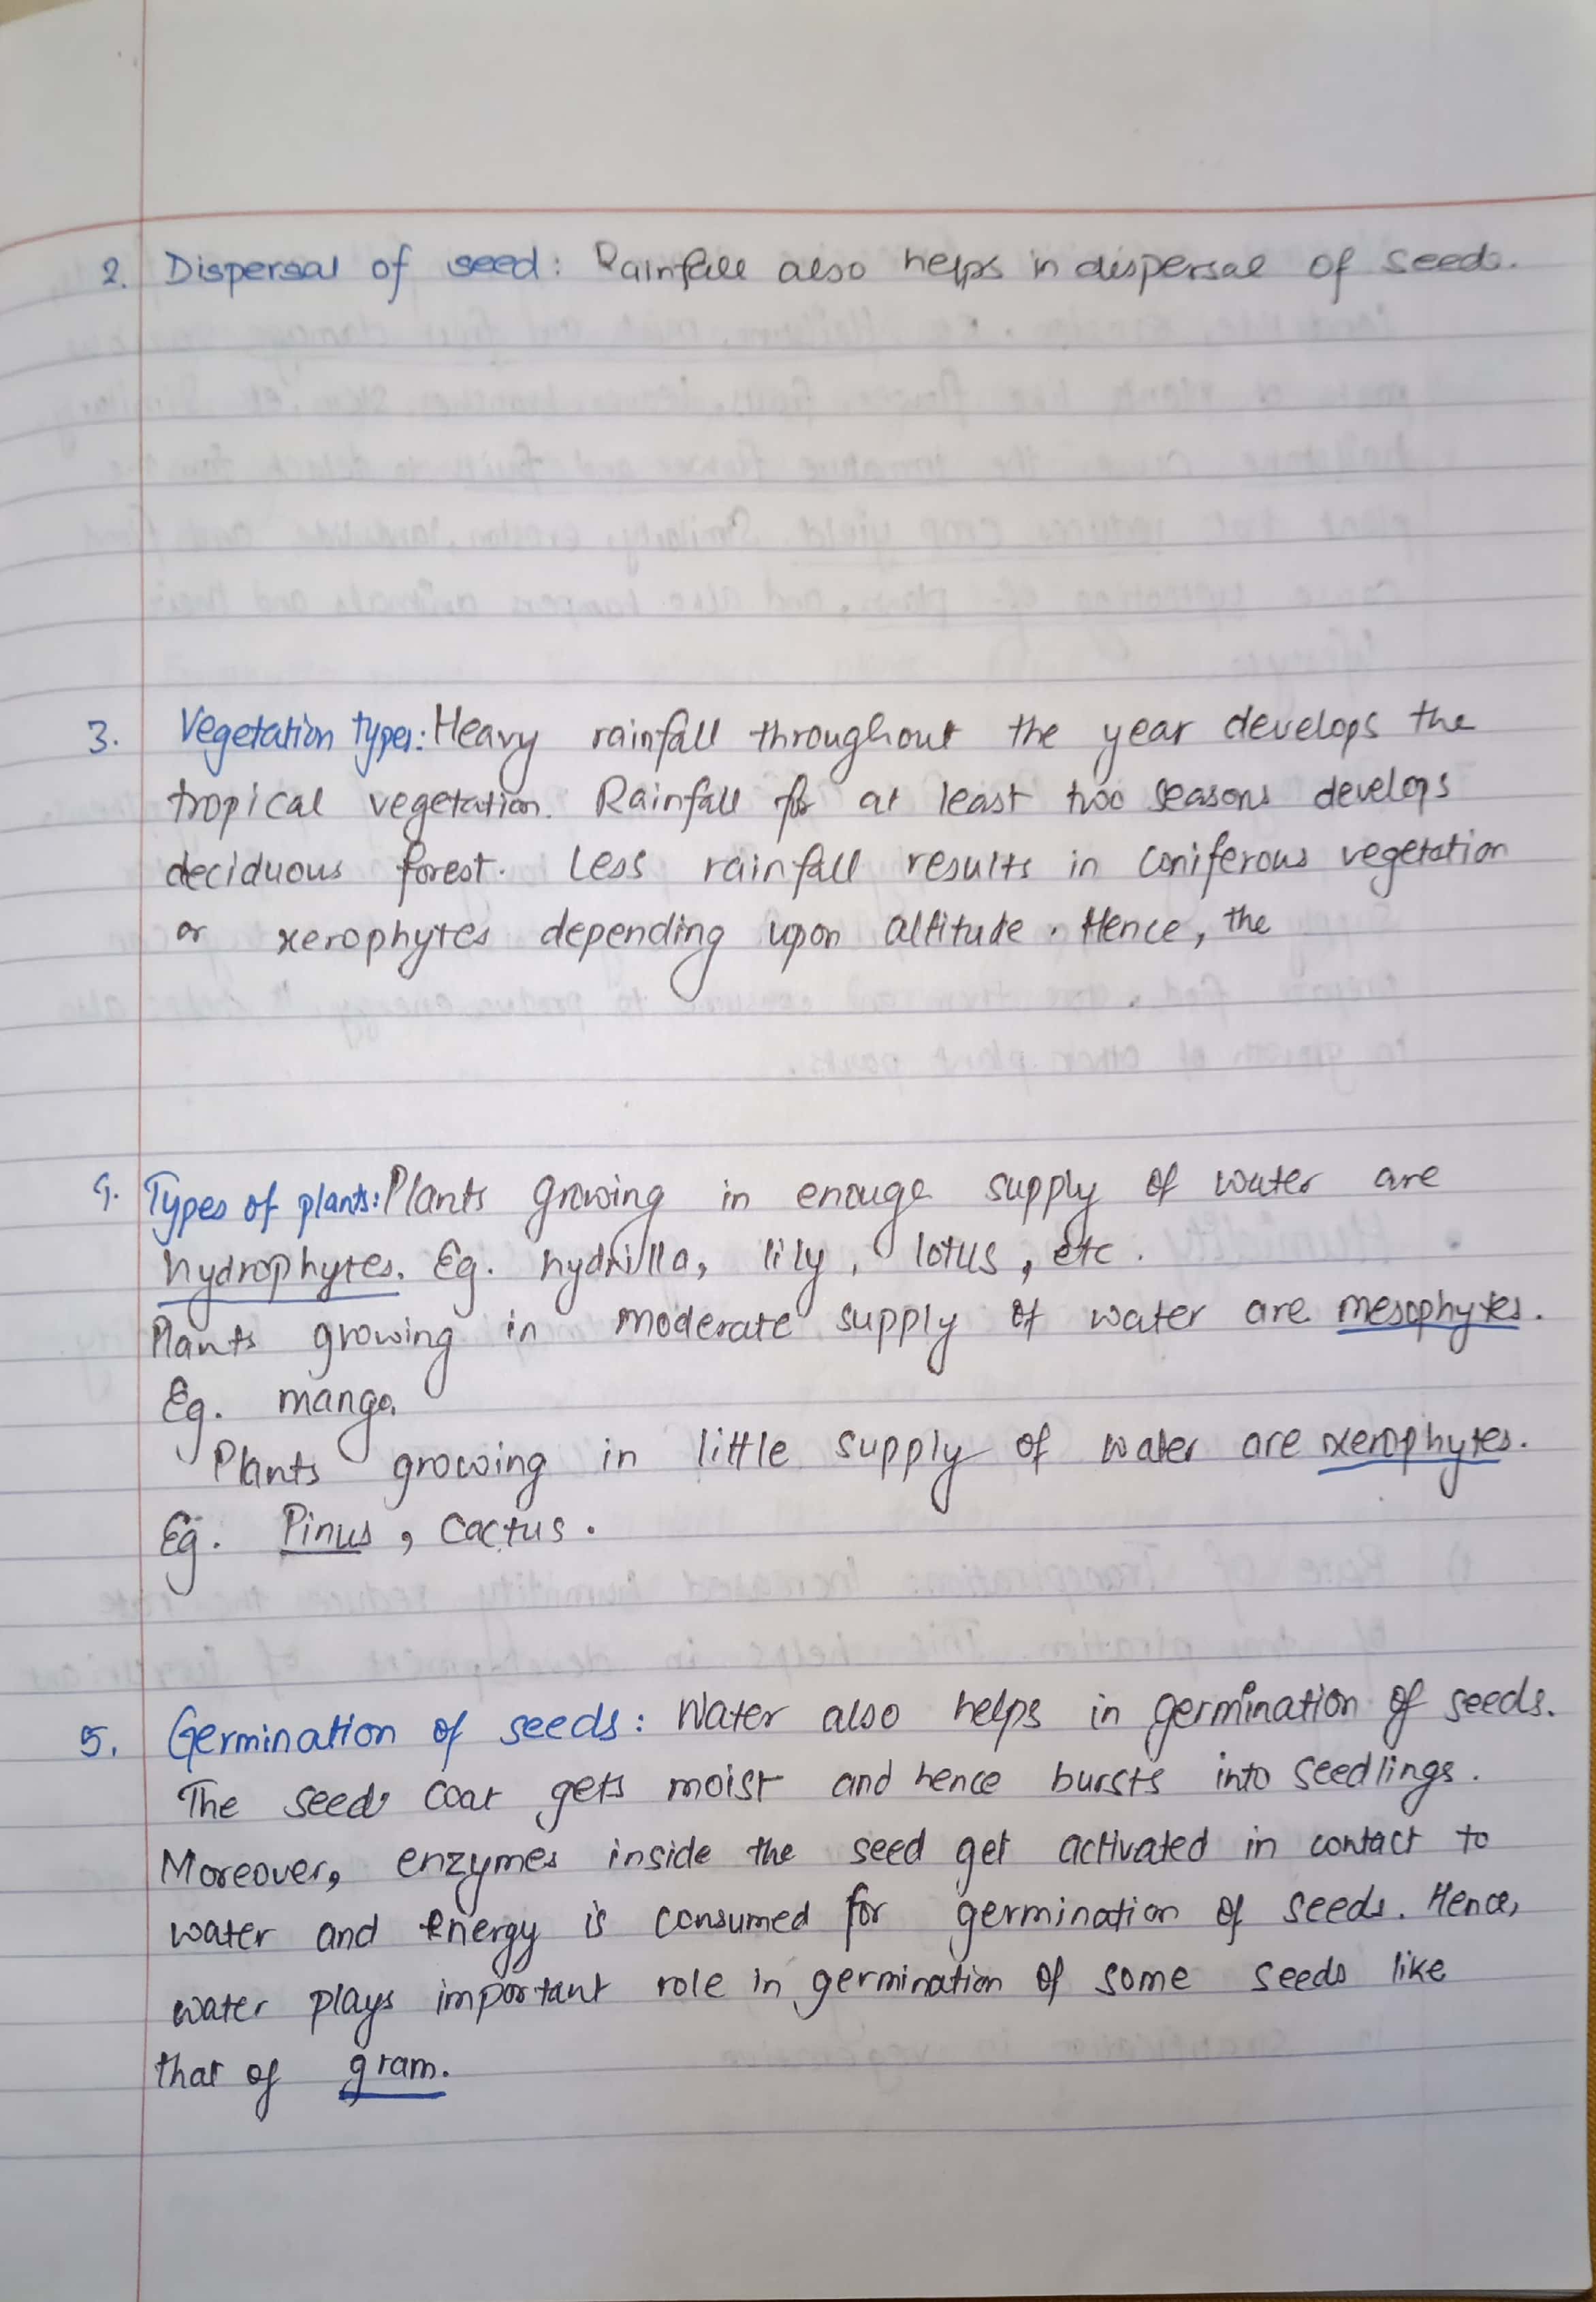 2. Dispersal of seed: Rainfall also helps in dispersal of seeds.
3. Vegetation types: Heavy rainfall throughout the year develops the
tropical vegetation. Rainfall for at least two seasons develops
deciduous forest. Less rainfall results in coniferous vegetation
or xerophytes depending upon altitude. Hence, the
4. Types of plants: Plants growing in enouge supply of water are
hydrophytes. Eg. hydrilla, lily, lotus, etc.
Plants growing in moderate supply of water are mesophytes.
Eg. mango.
Plants growing in little supply of water are xerophytes.
Eg. Pinus, Cactus.
5. Germination of seeds: Water also helps in germination of seeds.
The seeds coat gets moist and hence bursts into seedlings.
Moreover, enzymes inside the seed get activated in contact to
water and energy is consumed for germination of seeds. Hence,
water plays important role in germination of some seeds like
that of gram.